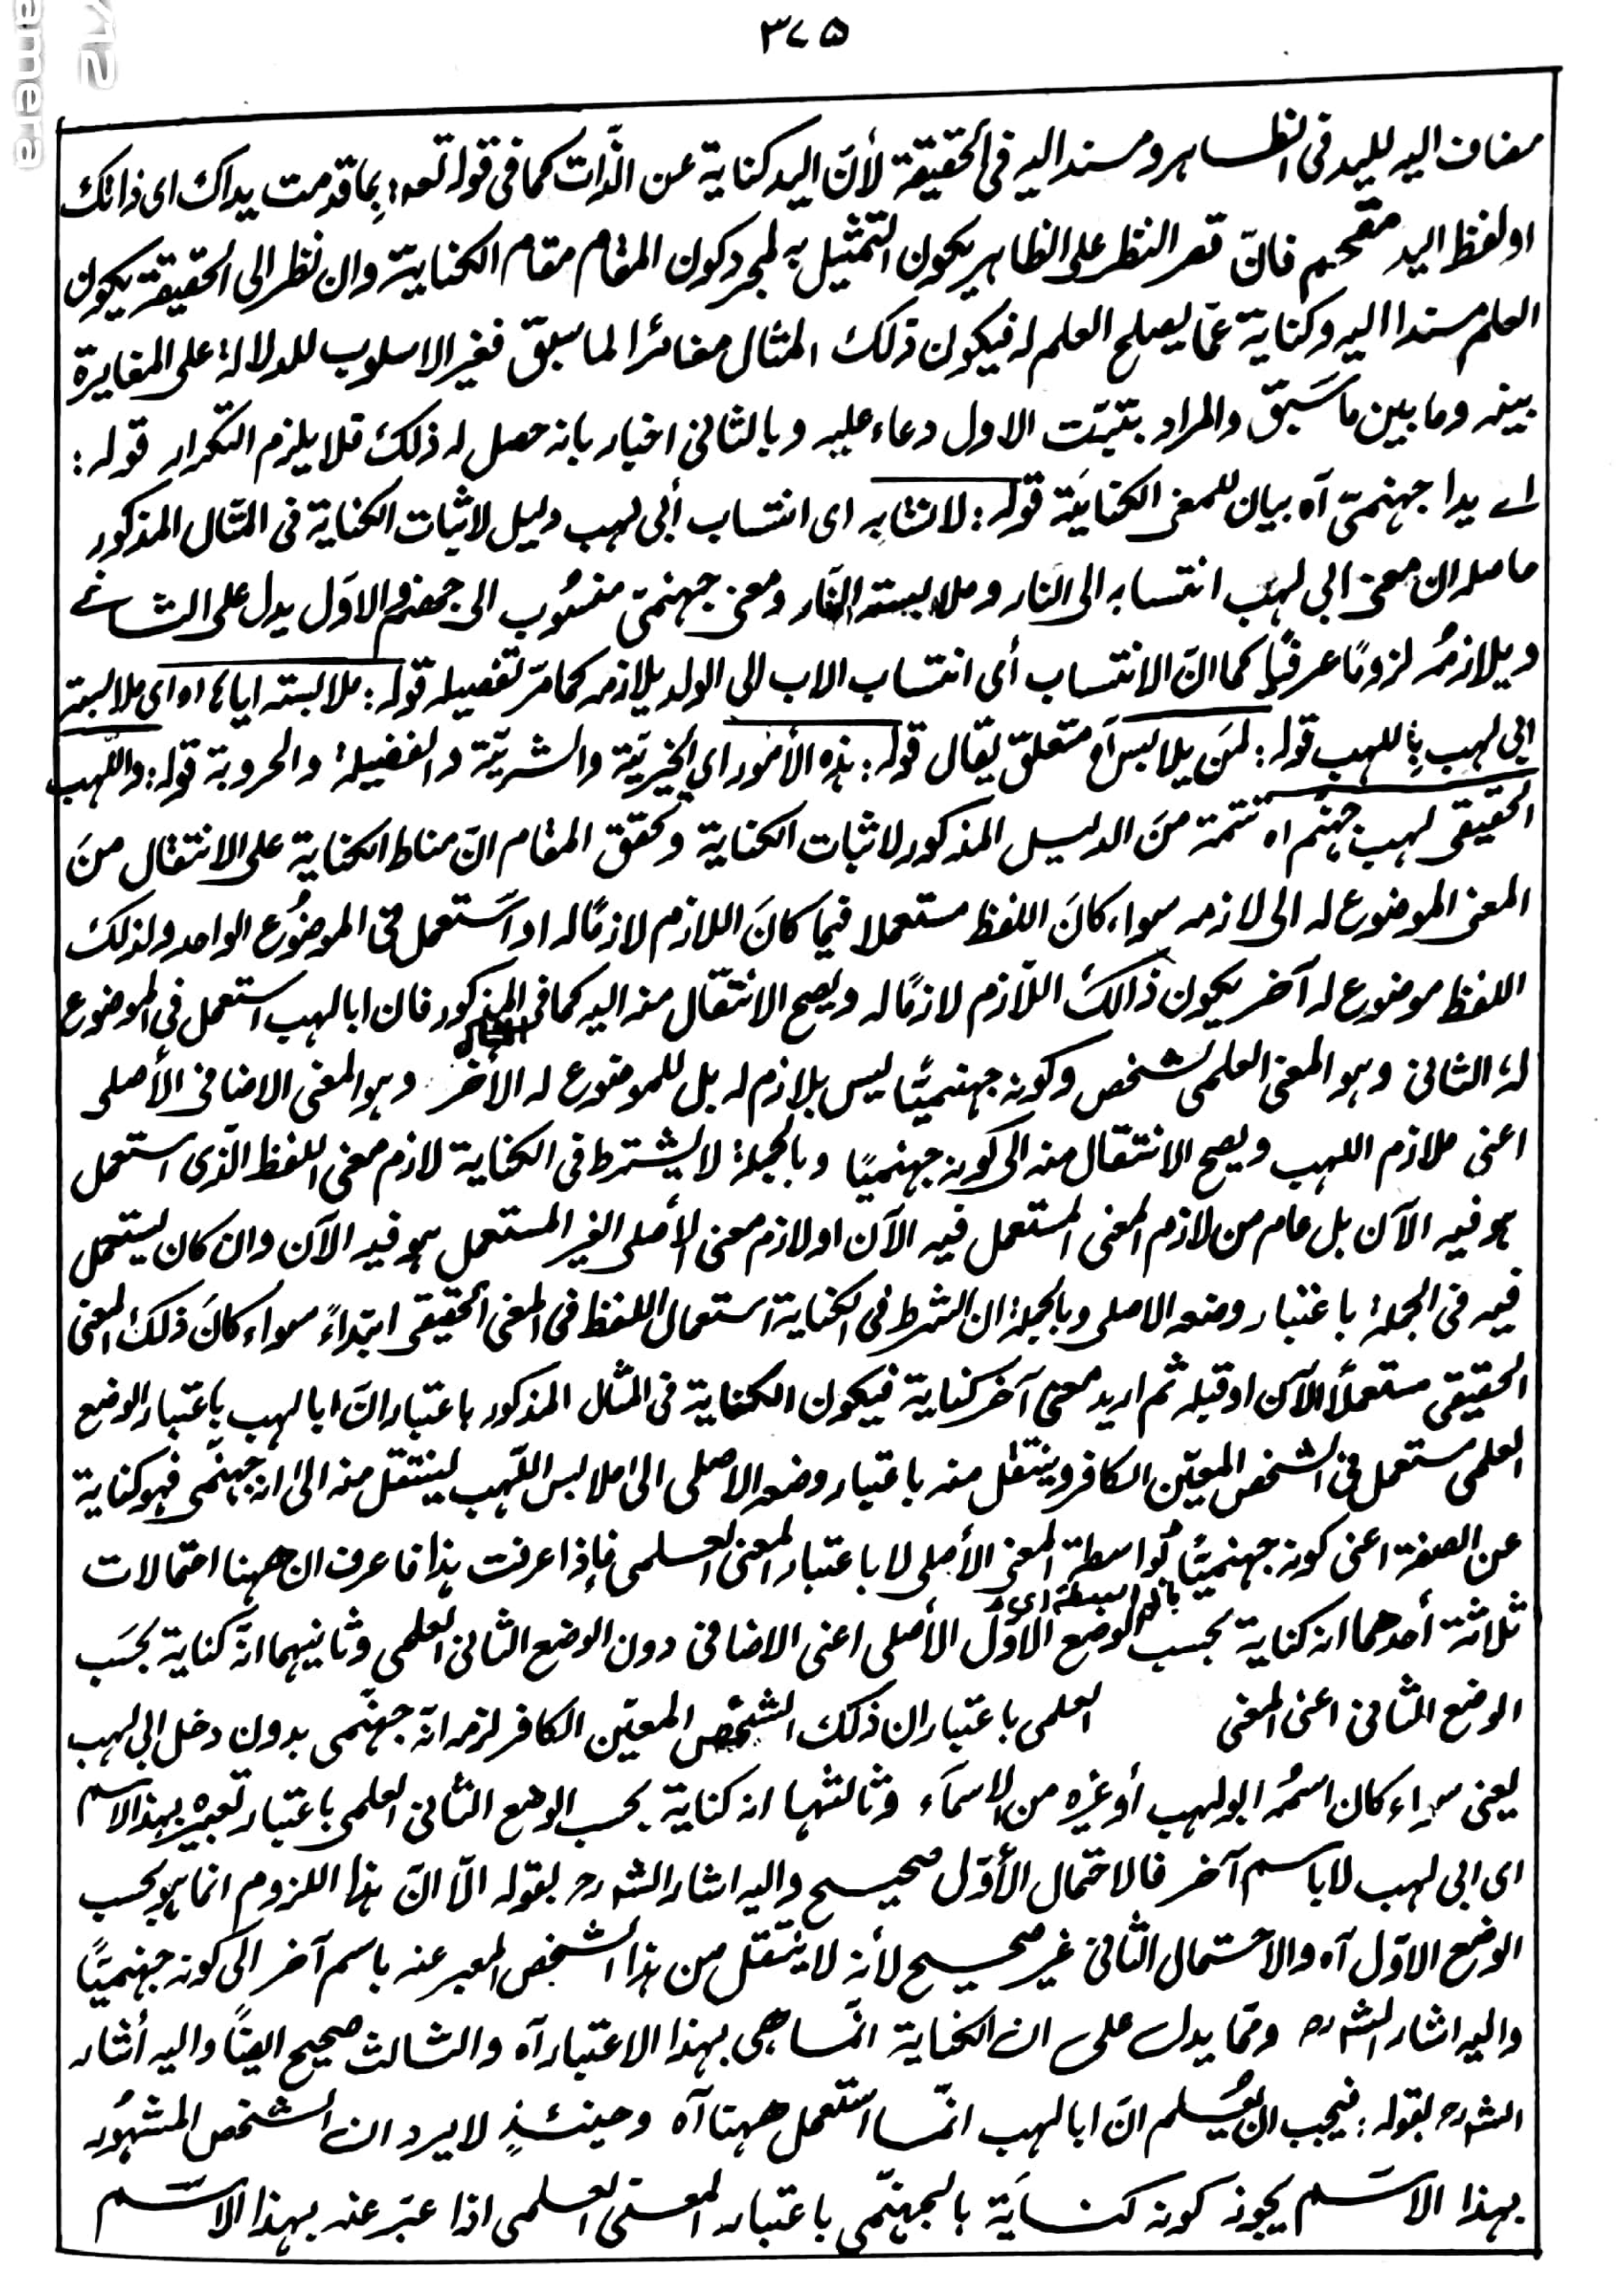 ٣٧٥
مضاف اليه لليد فى الظاهر ومسند اليه فى الحقيقة لأنّ اليد كناية عن الذّات كما فى قوله تعه: بِما قدمت يداك اى ذاتك
او لفظ اليد مقحم فانّ قصر النظر على الظاهر يكون التمثيل به لمجرد كون المقام مقام الكناية وان نظر الى الحقيقة يكون
العلم مسندا اليه وكناية عمّا يصلح العلم له فيكون ذلك المثال مغائرا لما سبق فغير الاسلوب للدلالة على المغايرة
بينه وما بين ما سَبَق والمراد بتبّت الاول دعاء عليه وبالثانى اخبار بانه حصل له ذلك فلا يلزم التكرار قوله:
اے يدا جهنمىّ آه بيان للمعنى الكنايَة قوله: لانتسابه اى انتساب أبى لهب دليل لاثبات الكناية فى المثال المذكور
حاصله ان معنى ابى لهب انتسابه الى النار وملابسته النّار ومعنى جهنمىّ منسُوب الى جهنم والاوّل يدل على الثانے
ويلازمُه لزومًا عرفيًا كما انّ الانتساب أى انتساب الاب الى الولد يلازمه كما مرّ تفصيله قوله: ملابسته اياها اه اى ملابسة
ابى لهب بِاللهب قوله: لمَن يلابس آه متعلق يقال قوله: هذه الأمور اى الخيريّة والشريّة والفضيلة والحروبة قوله: واللّهب
الحقيقى لهب جهنّم اه تتمة منَ الدليل المذكور لاثبات الكناية وتحقق المقام انّ مناط الكناية على الانتقال منَ
المعنى الموضوع له الى لازمه سواء كانَ اللفظ مستعملا فيما كانَ اللازم لازمًا له او استعمل فى الموضُوع الواحد ولذلك
اللفظ موضوع له آخر يكون ذالكَ اللّازم لازمًا له ويصح الانتقال منه اليه كما فى المذكور فان ابا لهب استعمل فى الموضوع
له الثانى وهو المعنى العلمى لشخص وكونه جهنميًّا ليس بلازم له بل للموضوع له الأخر وهو المعنى الاضافى الأصلى
اعنى ملازم اللهب ويصح الانتقال منه الى كونه جهنميًا وبالجملة لا يشترط فى الكناية لازم معنى اللفظ الّذى استعمل
هو فيه الآن بل عام من لازم المعنى المستعمل فيه الآن او لازم معنى الأصلى الغير المستعمل هو فيه الآن وان كان يستعمل
فيه فى الجملة باعتبار وضعه الاصلى وبالجملة ان الشرط فى الكناية استعمال اللفظ فى المعنى الحقيقى ابتداءً سواء كانَ ذلك المعنى
الحقيقى مستعملًا الآن او قبله ثم اريد معنى آخر كناية فيكون الكناية فى المثال المذكور باعتبار انّ ابا لهب باعتبار الوضع
العلمى مستعمل فى الشخص المعيّن الكافر وينتقل منه باعتبار وضعه الاصلى الى ملابس اللّهب لينتقل منه الى انه جهنّمى فهو كناية
عن الصفة اعنى كونه جهنميًّا بُواسطة المعنى الأصلى لا باعتبار المعنى العلمى فإذا عرفت هذا فاعرف ان ههنا احتمالات
ثلاثة أحدهما انه كناية بحسب الوضع الأوّل الأصلى اعنى الاضافى دون الوضع الثانى العلمى وثانيهما انّه كناية بحَسَب
الوضع الثانى اعنى المعنى العلمى باعتبار ان ذلك الشخص المعيّن الكافر لزمه انّه جهنّمى بدون دخل ابى لهب
يعنى سواء كان اسمُه ابو لهب أو غيره من الاسمَاء وثالثها انه كناية بحسب الوضع الثانى العلمى باعتبار تعبيره بهذا الاسم
اى ابى لهب لا باسم آخر فالاحتمال الأوّل صحيح واليه اشار الشارح بقوله الّا انّ هذا اللزوم انما هو بحسب
الوضع الاوّل آه والاحتمال الثانى غير صحيح لأنه لا ينتقل من هذا الشخص المعبر عنه باسم آخر الى كونه جهنميًّا
واليه اشار الشارح وممّا يدل على ان الكناية انّما هى بهذا الاعتبار آه والثالث صحيح ايضًا واليه أشار
الشارح بقوله: فيجب ان يُعلم انّ ابا لهب انّما استعمل ههنا آه وحينئذٍ لا يرد ان الشخص المشهُور
بهذا الاسم يجوز كونه كناية بالجهنّمى باعتبار المعنى العلمى اذا عبّر عنه بهذا الاسم